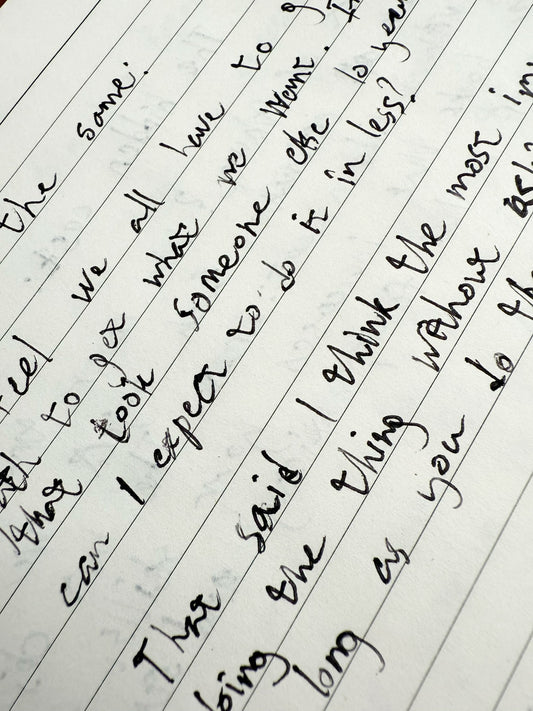 the same.
feel we all have to
to get what we want.
that took someone else 10 years
can I expect to do it in less?
That said I think the most
doing the thing without
long as you do